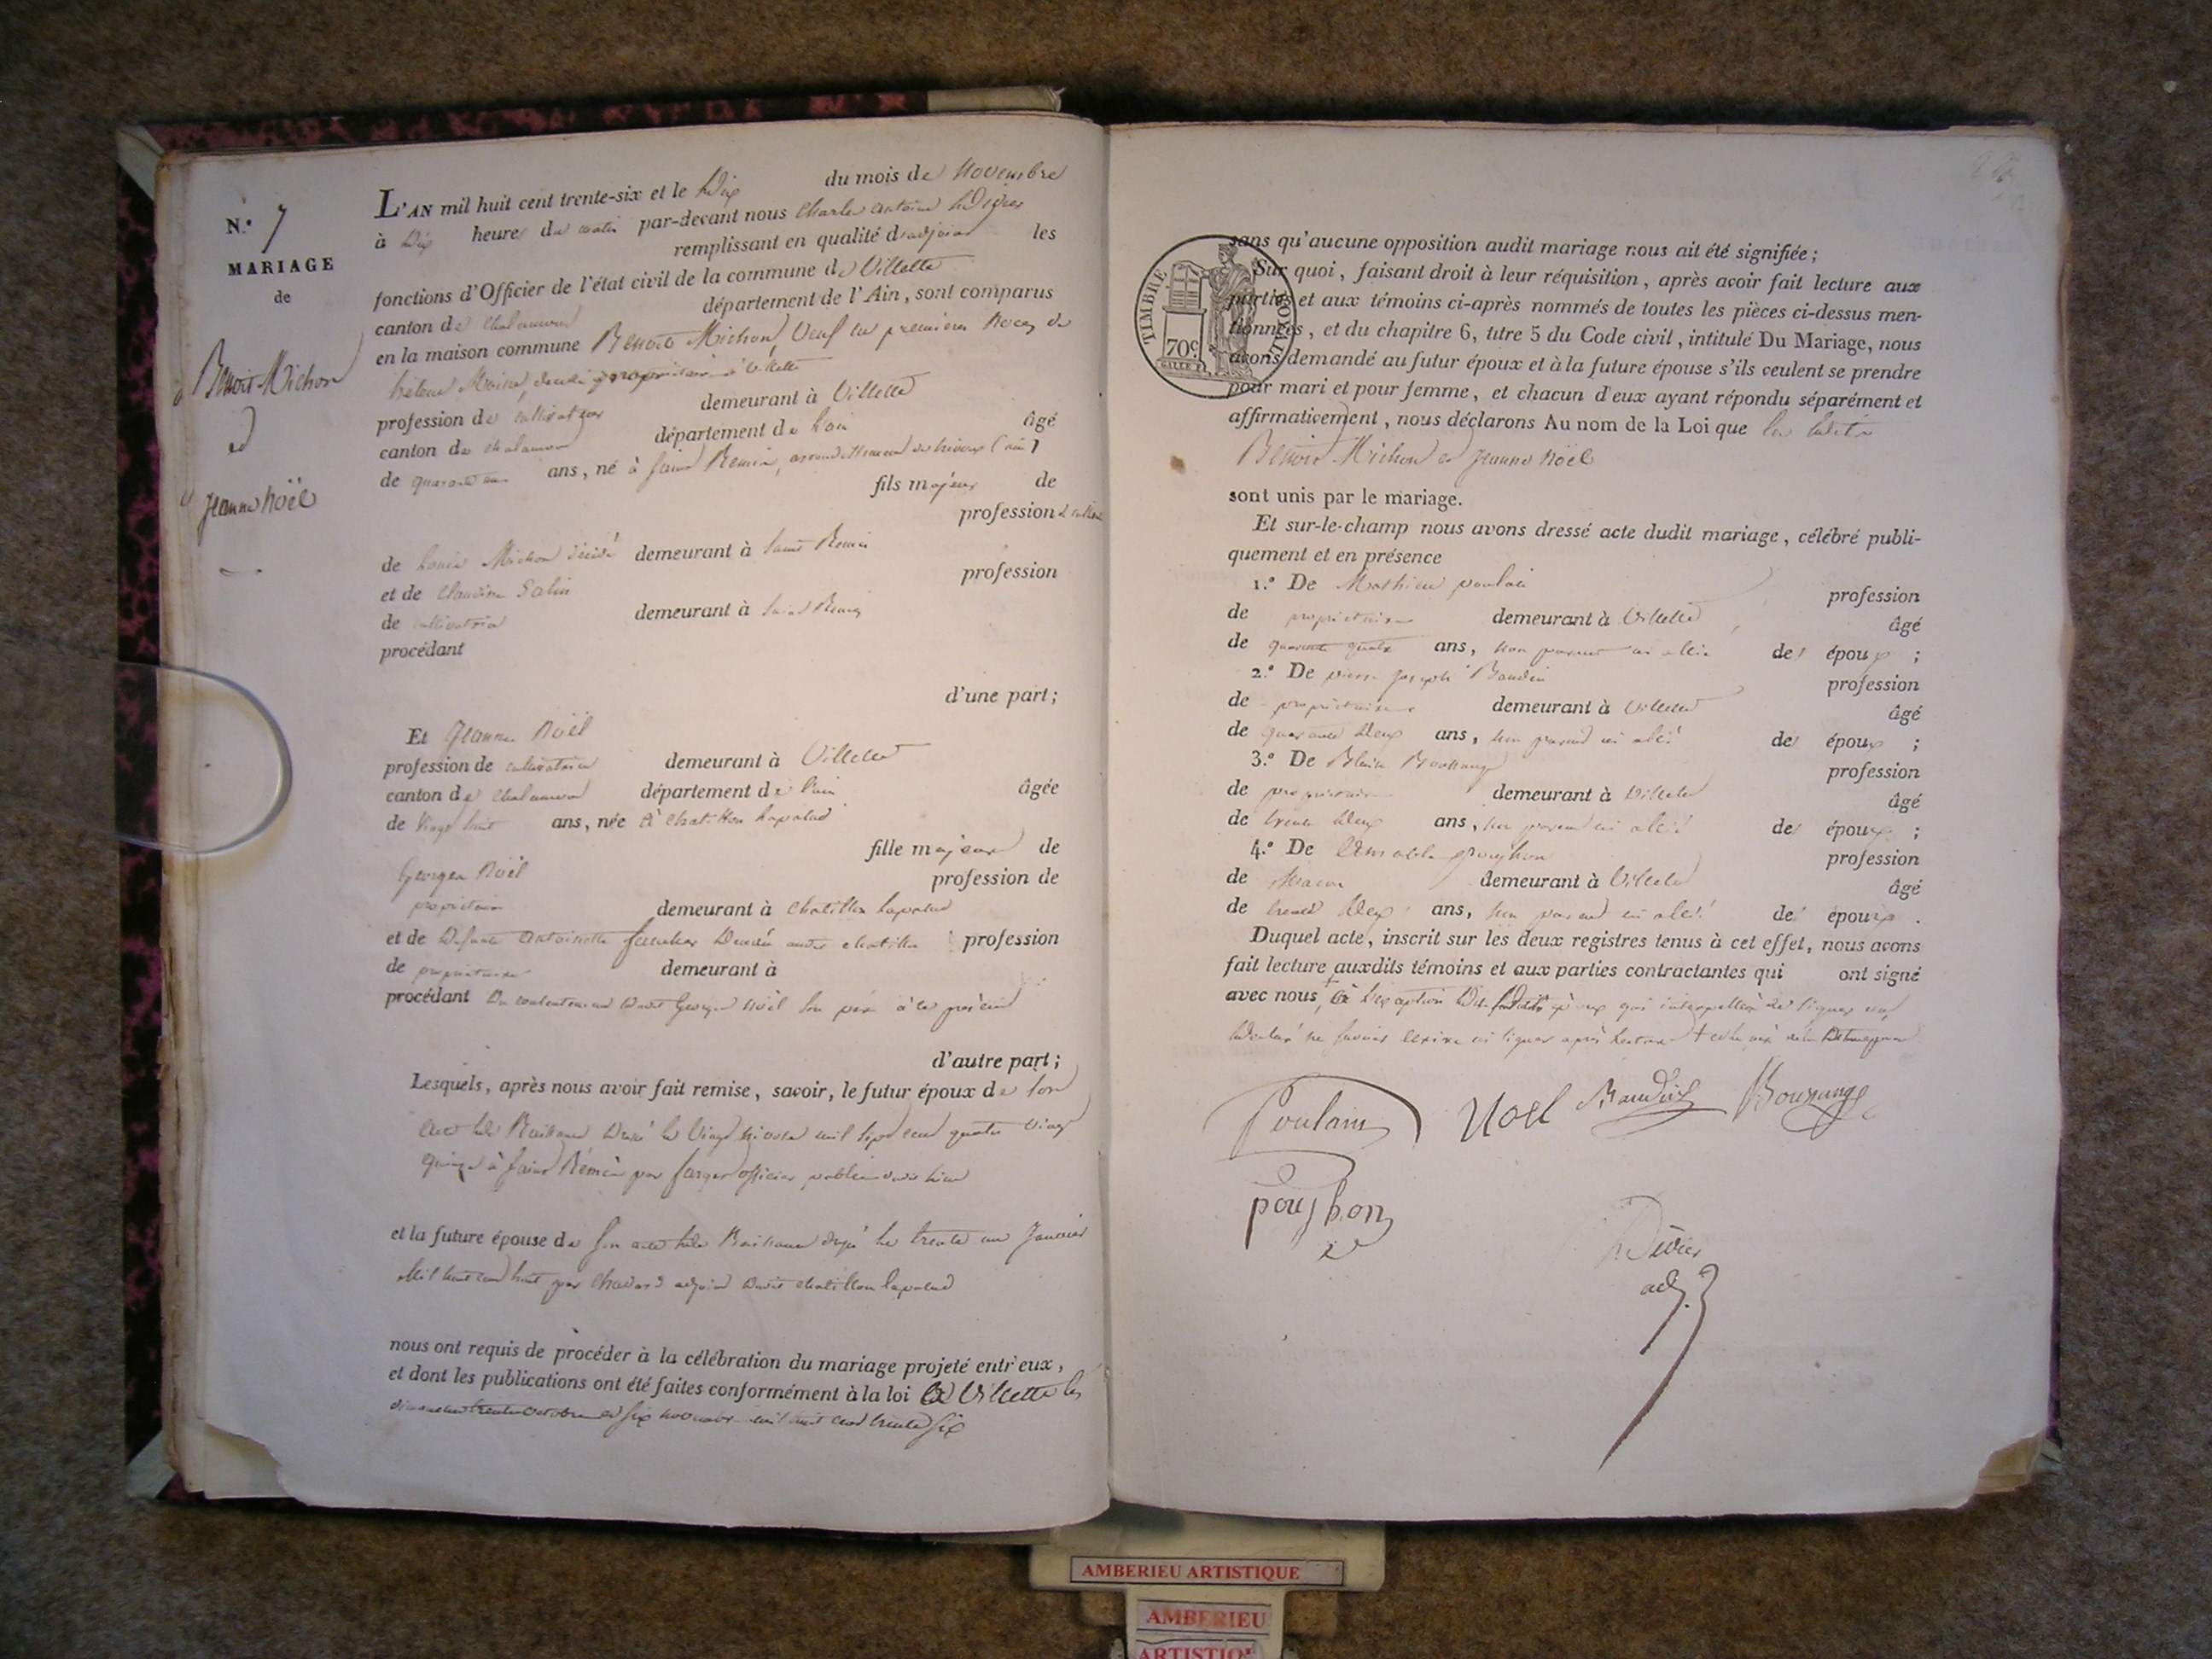 N.º 7
MARIAGE
de
Benoit Michon
et
Jeanne Noël
L'AN mil huit cent trente-six et le Dix du mois de Novembre
à Dix heures du matin par-devant nous Charles Antoine Didier
remplissant en qualité d'adjoint les
fonctions d'Officier de l'état civil de la commune de Villette
canton de Chalamont département de l'Ain, sont comparus
en la maison commune Benoit Michon, Veuf en premières Noces de
hélène décédée propriétaire à Villette
profession de cultivateur demeurant à Villette
canton de chalamont département de l'ain âgé
de quarante un ans, né à Saint Remis, arrondissement de trévoux (ain)
fils majeur de
profession
de Louis Michon décédé demeurant à Saint Remis
et de Claudine profession
de cultivatrice demeurant à Saint Remis
procédant
d'une part;
Et Jeanne Noël
profession de cultivatrice demeurant à Villette
canton de Chalamont département de l'ain âgée
de Vingt huit ans, née à Chatillon Lapalud
fille majeure de
Georges Noël profession de
propriétaire demeurant à Chatillon Lapalud
et de Défunte Antoinette profession
de propriétaire demeurant à
procédant Du consentement Dudit Georges Noël son père à ce présent
d'autre part;
Lesquels, après nous avoir fait remise, savoir, le futur époux de son
acte de Naissance le Vingt nivose mil sept cent quatre Vingt
quinze à Saint Rémis par officier public dudit lieu
et la future épouse de son acte de Naissance le trente un Janvier
Mil huit cent huit par adjoint Dudit Chatillon lapalud
nous ont requis de procéder à la célébration du mariage projeté entr'eux,
et dont les publications ont été faites conformément à la loi à Villette les
dimanches trente octobre et six novembre mil huit cent trente six
TIMBRE ROYAL
70c
sans qu'aucune opposition audit mariage nous ait été signifiée;
Sur quoi, faisant droit à leur réquisition, après avoir fait lecture aux
parties et aux témoins ci-après nommés de toutes les pièces ci-dessus men-
tionnées, et du chapitre 6, titre 5 du Code civil, intitulé Du Mariage, nous
avons demandé au futur époux et à la future épouse s'ils veulent se prendre
pour mari et pour femme, et chacun d'eux ayant répondu séparément et
affirmativement, nous déclarons Au nom de la Loi que les dits
Benoit Michon et Jeanne Noël
sont unis par le mariage.
Et sur-le-champ nous avons dressé acte dudit mariage, célébré publi-
quement et en présence
1.º De Mathieu poulain profession
de propriétaire demeurant à Villette âgé
de quarante quatre ans, non parent ni allié des époux;
2.º De pierre joseph Baudin profession
de propriétaire demeurant à Villette âgé
de quarante deux ans, non parent ni allié des époux;
3.º De profession
de propriétaire demeurant à Villette âgé
de trente deux ans, non parent ni allié des époux;
4.º De profession
de Maçon demeurant à Villette âgé
de trente deux ans, non parent ni allié des époux.
Duquel acte, inscrit sur les deux registres tenus à cet effet, nous avons
fait lecture auxdits témoins et aux parties contractantes qui ont signé
avec nous, à l'exception qui interpellés de signer ont
déclaré ne savoir écrire ni signer après lecture
Poulain Noel Baudin
Didier
adj.
AMBERIEU ARTISTIQUE
AMBERIEU
ARTISTIQUE